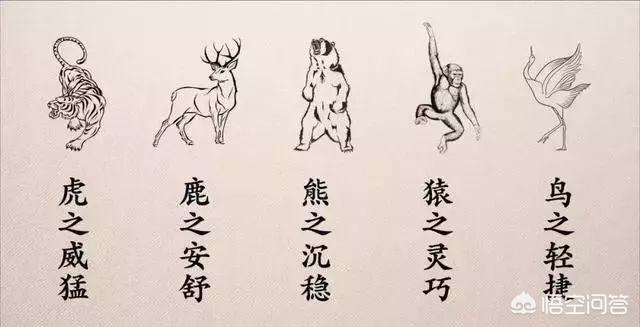 虎之威猛
鹿之安舒
熊之沉稳
猿之灵巧
鸟之轻捷
悟空问答